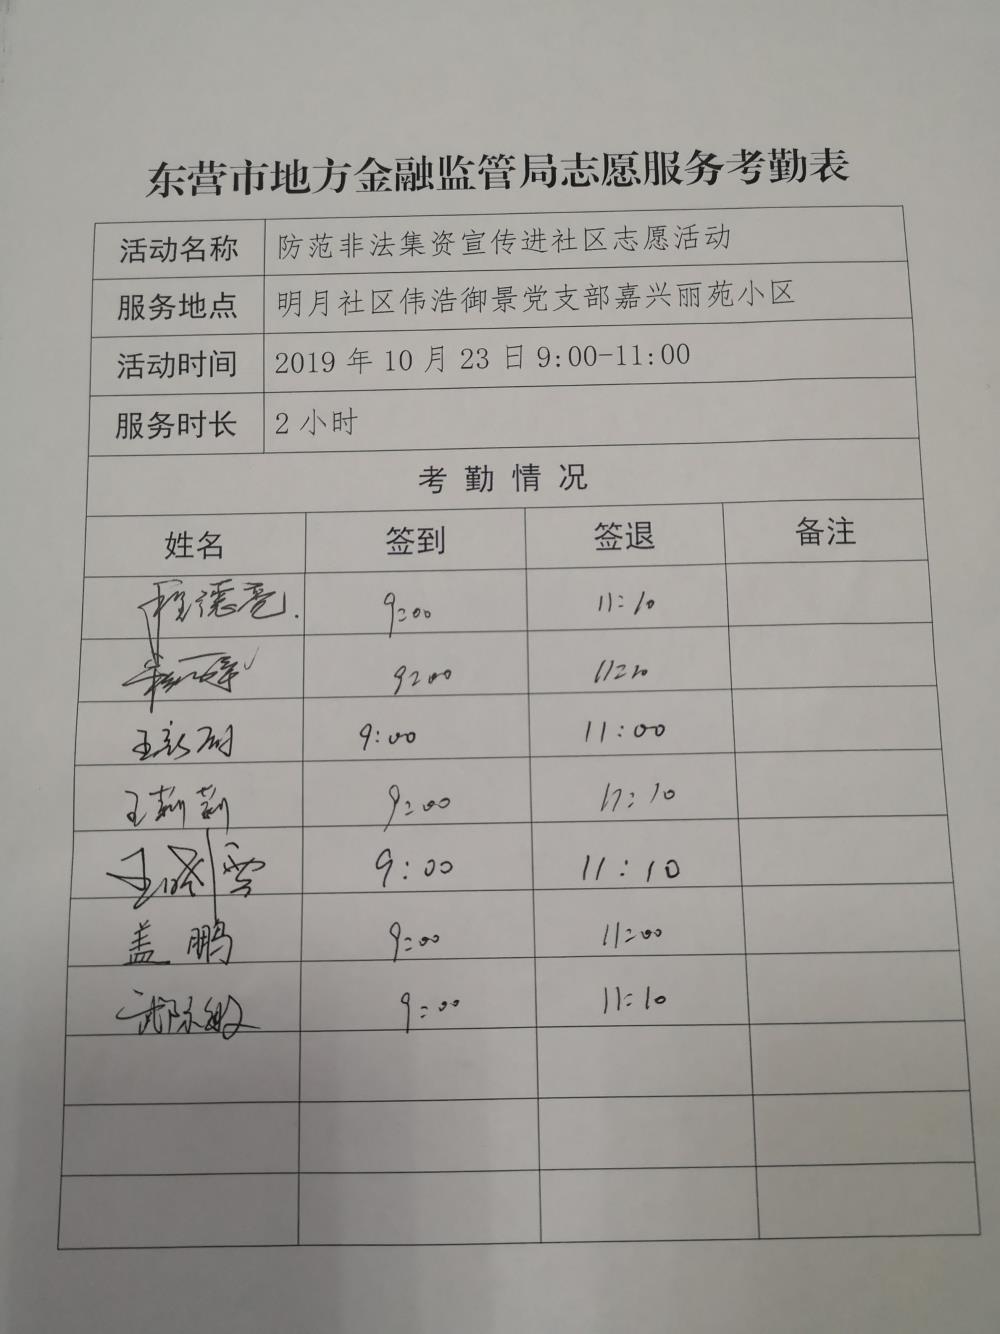 东营市地方金融监管局志愿服务考勤表
活动名称 防范非法集资宣传进社区志愿活动
服务地点 明月社区伟浩御景党支部嘉兴丽苑小区
活动时间 2019年10月23日9:00-11:00
服务时长 2小时
考勤情况
姓名 签到 签退 备注
程德亮 9:00 11:10
9:00
王新刚 9:00 11:00
王莉莉 9:00 11:10
王晓雪 9:00 11:10
盖鹏 9:00 11:00
武陈敏 9:00 11:10